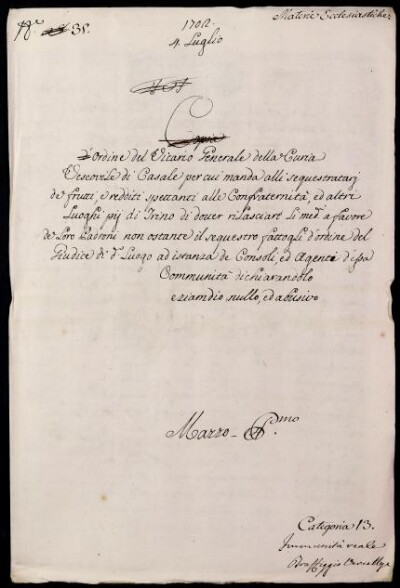 Materie Ecclesiastiche
N.º 38.
1702.
4. Luglio
Copia
d'ordine del Vicario Generale della Curia
Vescovile di Casale per cui manda alli sequestratarj
de frutti, e redditi spettanti alle Confraternità, ed altri
Luoghi pij di Trino di dover rilasciare li med.i a favore
de Loro Padroni non ostante il sequestro fattogli d'ordine del
Giudice di d.º Luogo ad istanza de Consoli, ed Agenti d'essa
Communità dichiarandolo
eziamdio nullo, ed abusivo
Mazzo P.mo
Categoria 13.
Immunità reale